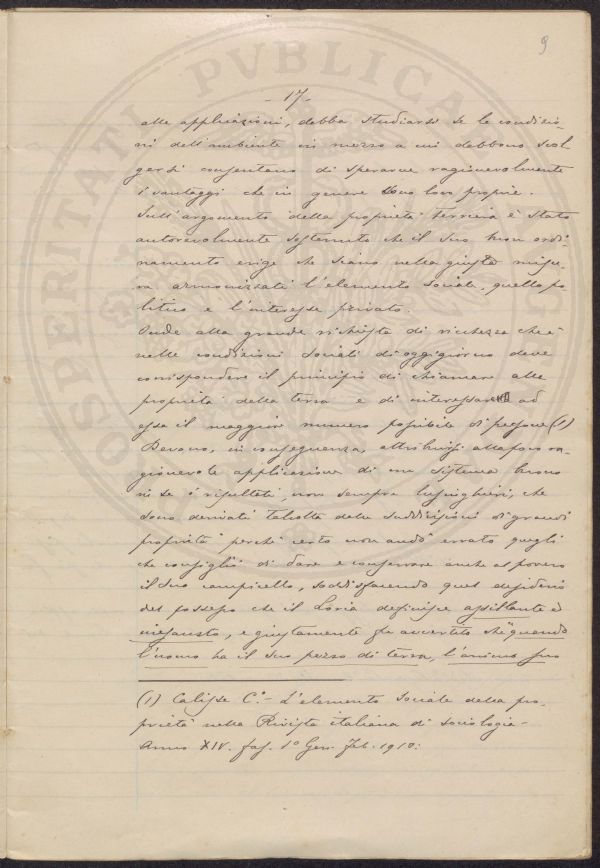 9
- 17 -
alle applicazioni, debba studiarsi se le condizio-
ni dell'ambiente in mezzo a cui debbono svol
gersi consentano di sperarne ragionevolmente
i vantaggi che in genere sono loro proprii.
Sull'argomento della proprietà terriera è stato
autorevolmente sostenuto che il suo buon ordi-
namento esige che siano nella giusta misu-
ra armonizzati l'elemento sociale, quello po-
litico e l'interesse privato.
Onde alla grande richiesta di ricchezza che è
nelle condizioni sociali di oggigiorno deve
corrispondere il principio di chiamare alla
proprietà della terra e di interessare ad
essa il maggior numero possibile di persone (1)
Devono, in conseguenza, attribuirsi alla poco ra-
gionevole applicazione di un sistema buono
in se i risultati, non sempre lusinghieri, che
sono derivati talvolta dalla suddivisioni di grandi
proprietà perchè certo non andò errato quegli
che consigliò di dare e conservare anche al povero
il suo campicello, soddisfacendo quel desiderio
del possesso che il Loria definisce assillante ed
inesausto, e giustamente fu avvertito che "quando
l'uomo ha il suo pezzo di terra, l'animo suo
(1) Calisse C.° - L'elemento sociale della pro-
prietà nella Rivista italiana di sociologia -
Anno XIV. fas. 1° Gen. Feb. 1910.
PROSPERITATI PVBLICAE